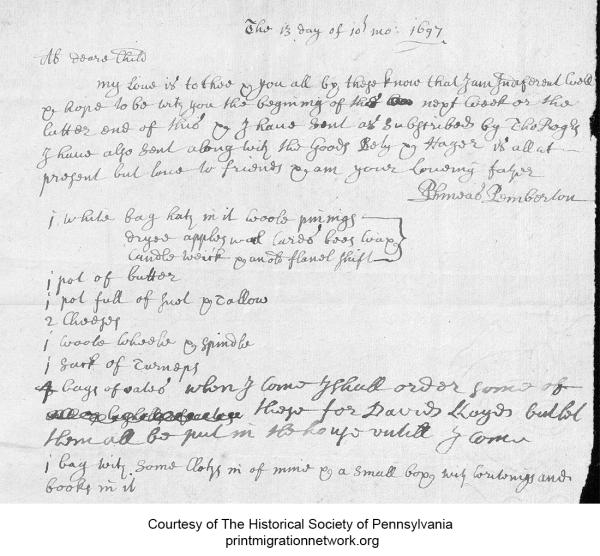 The 13 day of 10th mo: 1697
Ab deare Child
my Love is to thee & you all by these know that I am Indiferent well
& hope to be with you the begining of the next week or the
latter end of this & I have sent as Subscribed by Tho Rogrs
I have also sent along with the Goods Bety & Hager is all at
present but love to friends & am your Loveing father
Phineas Pemberton
1 white bag hath in it woole
dryed apples wool Cards bees wax &
Candle weick & flanel shift
1 pot of butter
1 pot full of Suet & Tallow
2 Cheeses
1 woole wheele & spindle
1 Sack of Turneps
4 bags of oates when I come I shall order some of
these for David Lloyds but let
them all be put in the house untill I come
1 bag with Some Cloths in of mine & a Small box with writeings and
books in it
Courtesy of The Historical Society of Pennsylvania
printmigrationnetwork.org